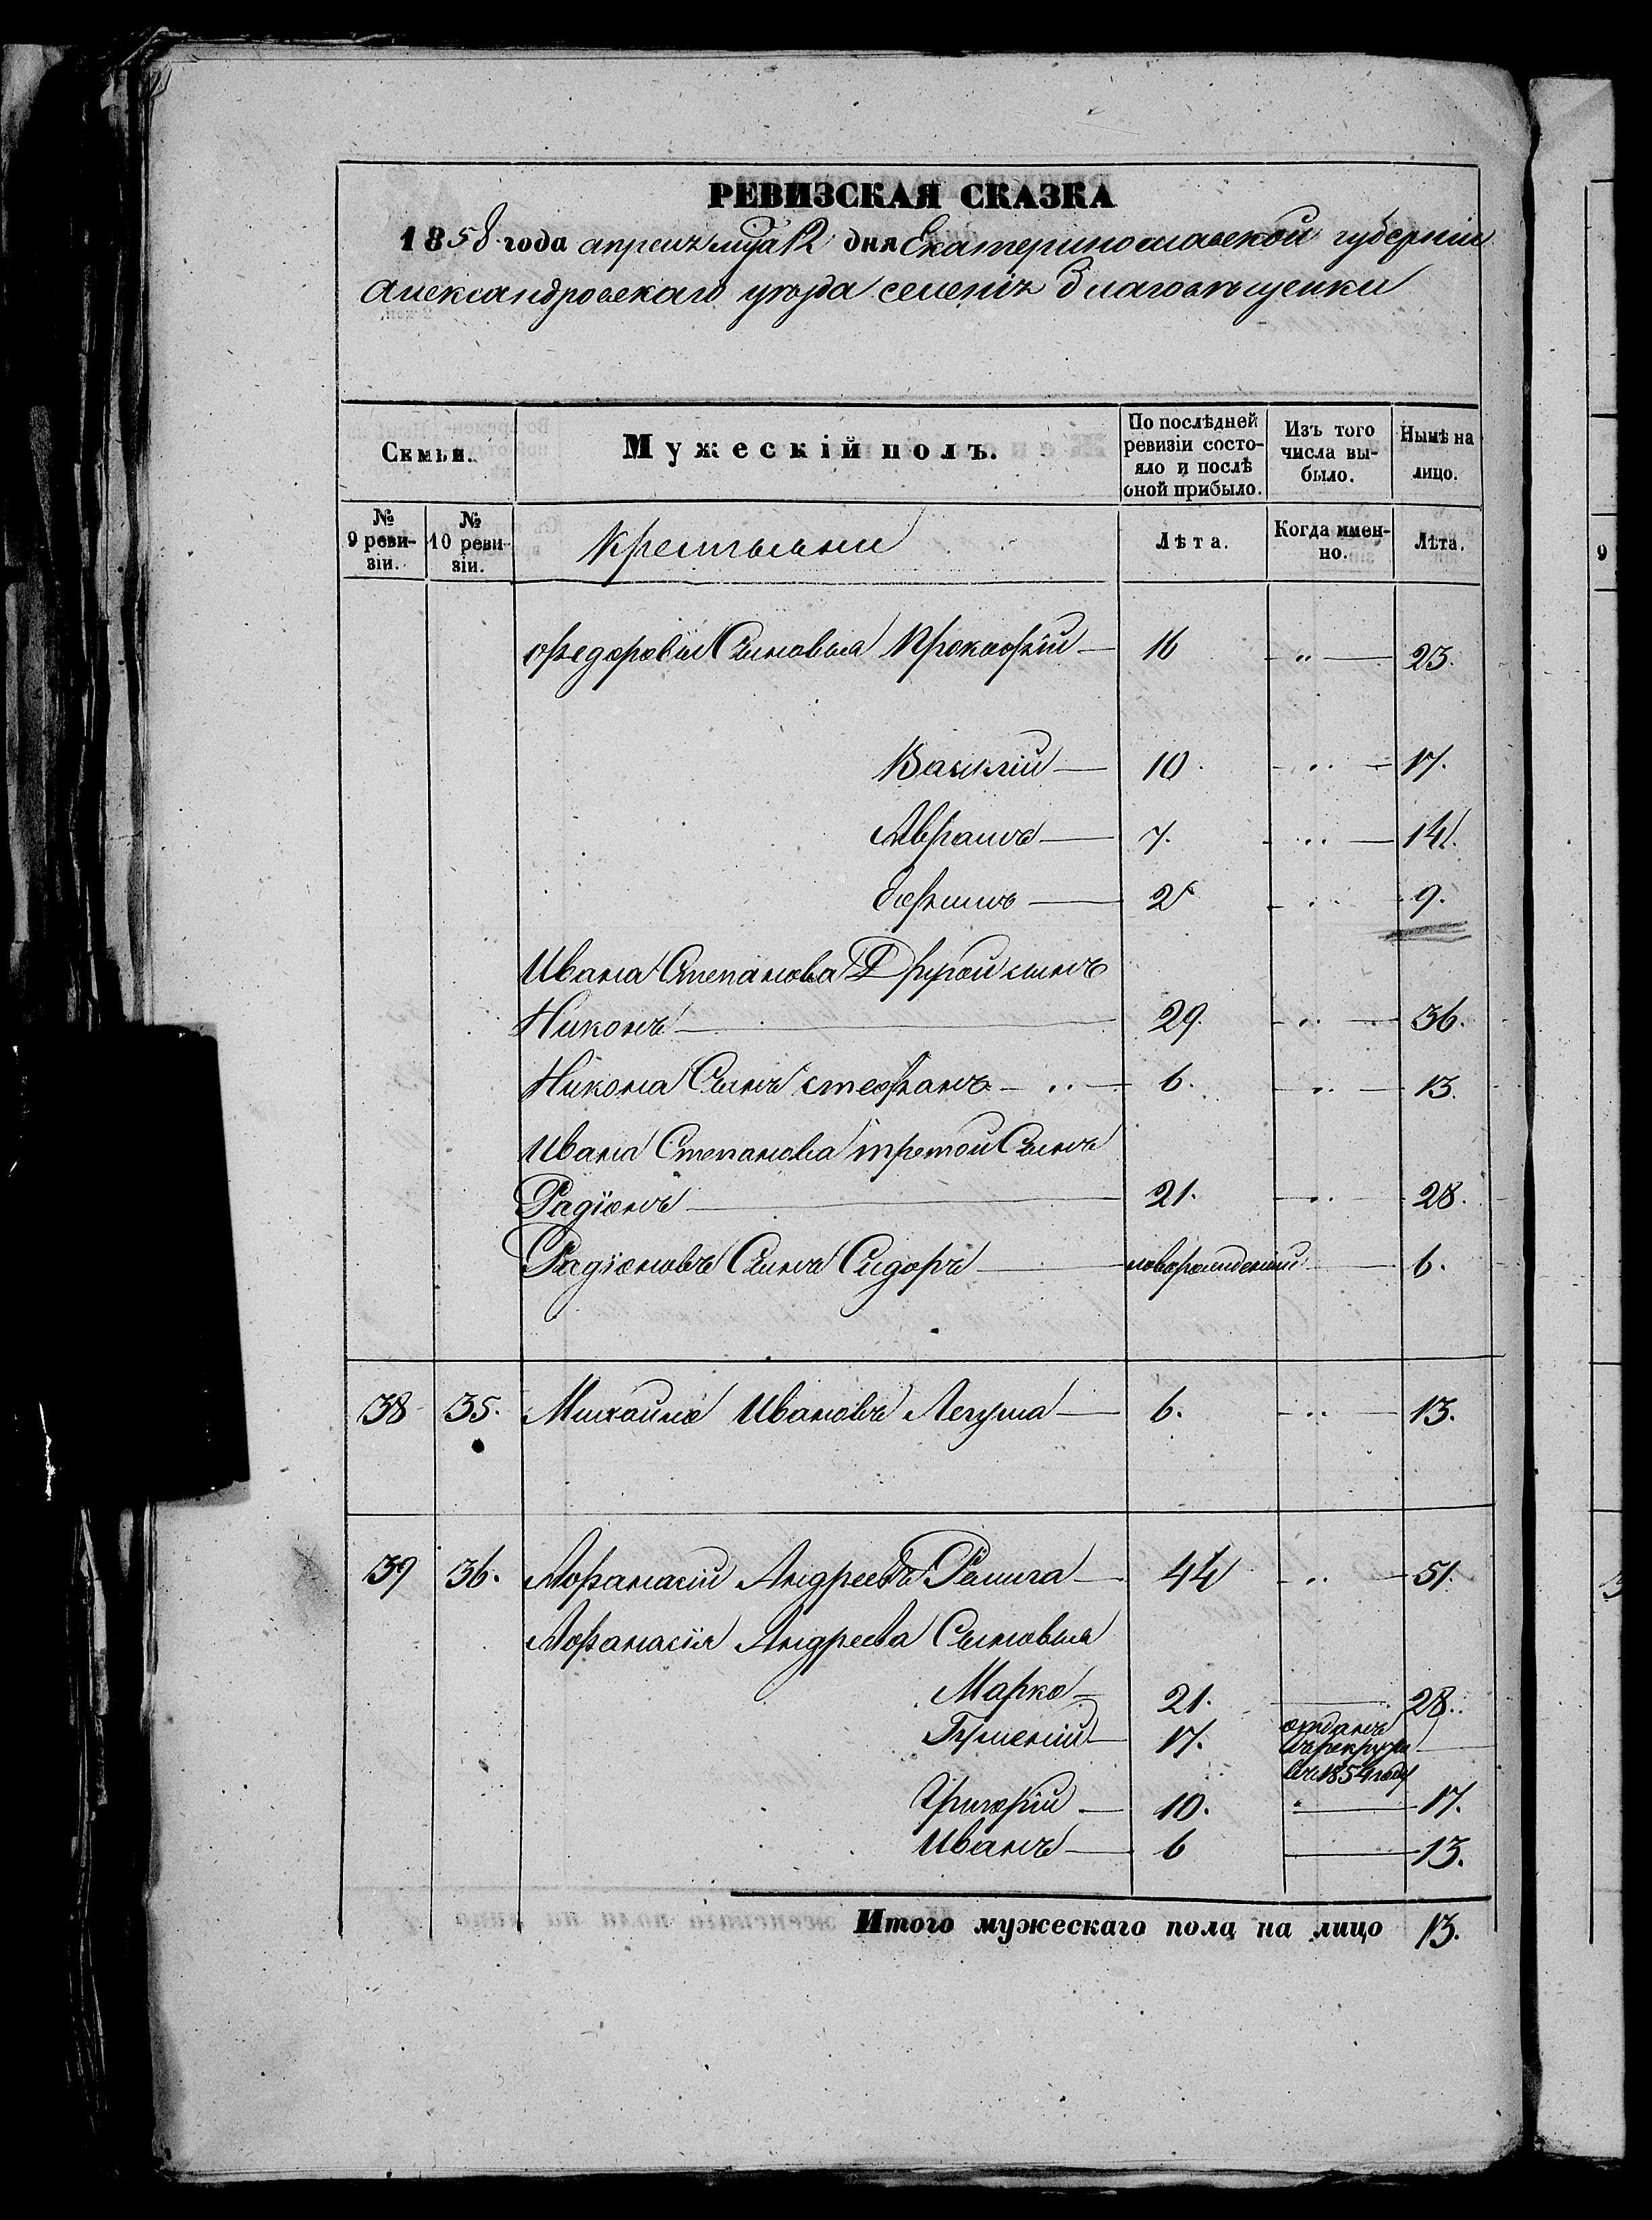 РЕВИЗСКАЯ СКАЗКА
1858 года апреля 12 дня Екатеринославской губернiи
Александровскаго уѣзда селенiя Благовѣщенки
Семьи.
Мужескiй полъ.
По послѣдней ревизiи состояло и послѣ оной прибыло.
Изъ того числа выбыло.
Нынѣ на лицо.
№ 9 ревизiи.
№ 10 ревизiи.
Крестьяни
Лѣта.
Когда именно.
Лѣта.
Федоровы Сыновья Прокофiй 16 " 23.
Василiй 10. " 17.
Аврамъ 7. " 14.
Ефимъ 2 " 9.
Ивана Степанова Другой сынъ
Никонъ 29. " 36.
Никона Сынъ стефанъ " 6. " 13.
Ивана Степанова третой Сынъ
Радiонъ 21. " 28.
Радiоновъ Сынъ Сидоръ новорожденный 6.
38 35. Михайло Ивановъ Легуша 6. " 13.
39 36. Афанасiй Андреевъ 44 " 51.
Афанасiя Андреева Сыновья
Марко 21. 28.
17. отданъ въ рекруты въ 1854 году
Григорiй 10. " 17.
Иванъ 6 13.
Итого мужескаго пола на лицо 13.